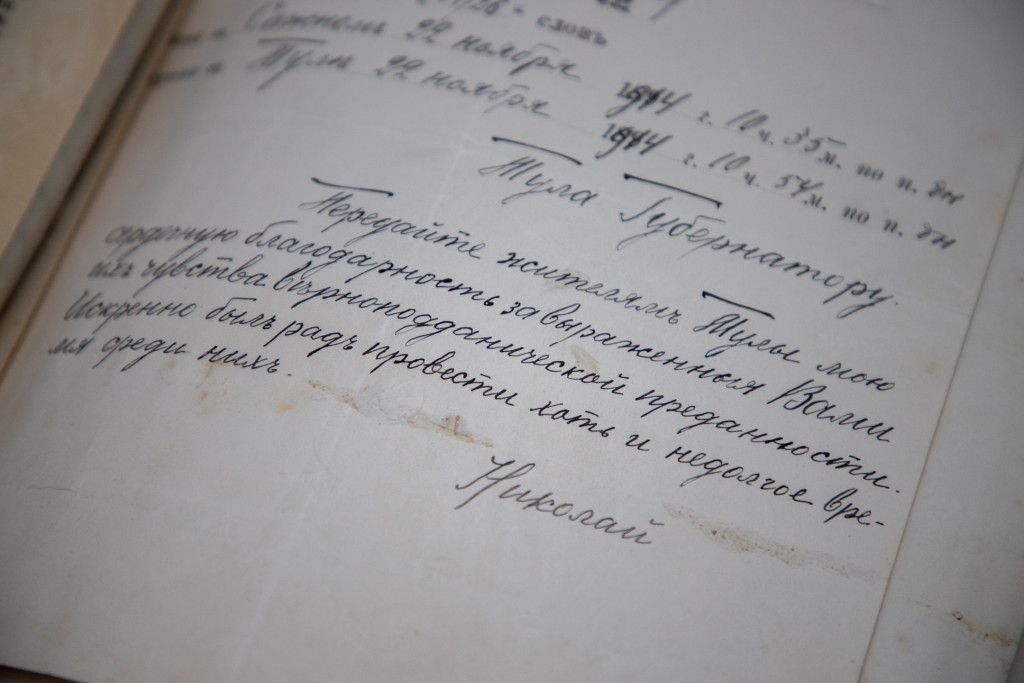 словъ
22 ноября 1914 г. 10 ч. 35 м. по п. дн
Тулы 22 ноября 1914 г. 10 ч. 54 м. по п. дн
Тула Губернатору.
Передайте жителямъ Тулы мою
сердечную благодарность за выраженныя Вами
ихъ чувства вѣрноподданической преданности.
Искренно былъ радъ провести хоть и недолгое вре-
мя среди нихъ.
Николай